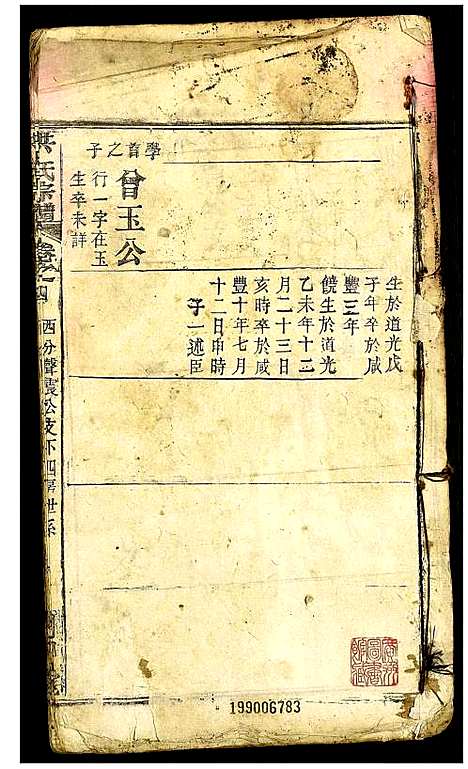 學首之子
曾玉公
行一字在玉
生卒未詳
生於道光戊
子年卒於咸
豐三年
饒生於道光
乙未年十二
月二十三日
亥時卒於咸
豐十年七月
十二日申時
子一述臣
氏宗譜
卷之四
西分聲震公支下四房世系
199006783